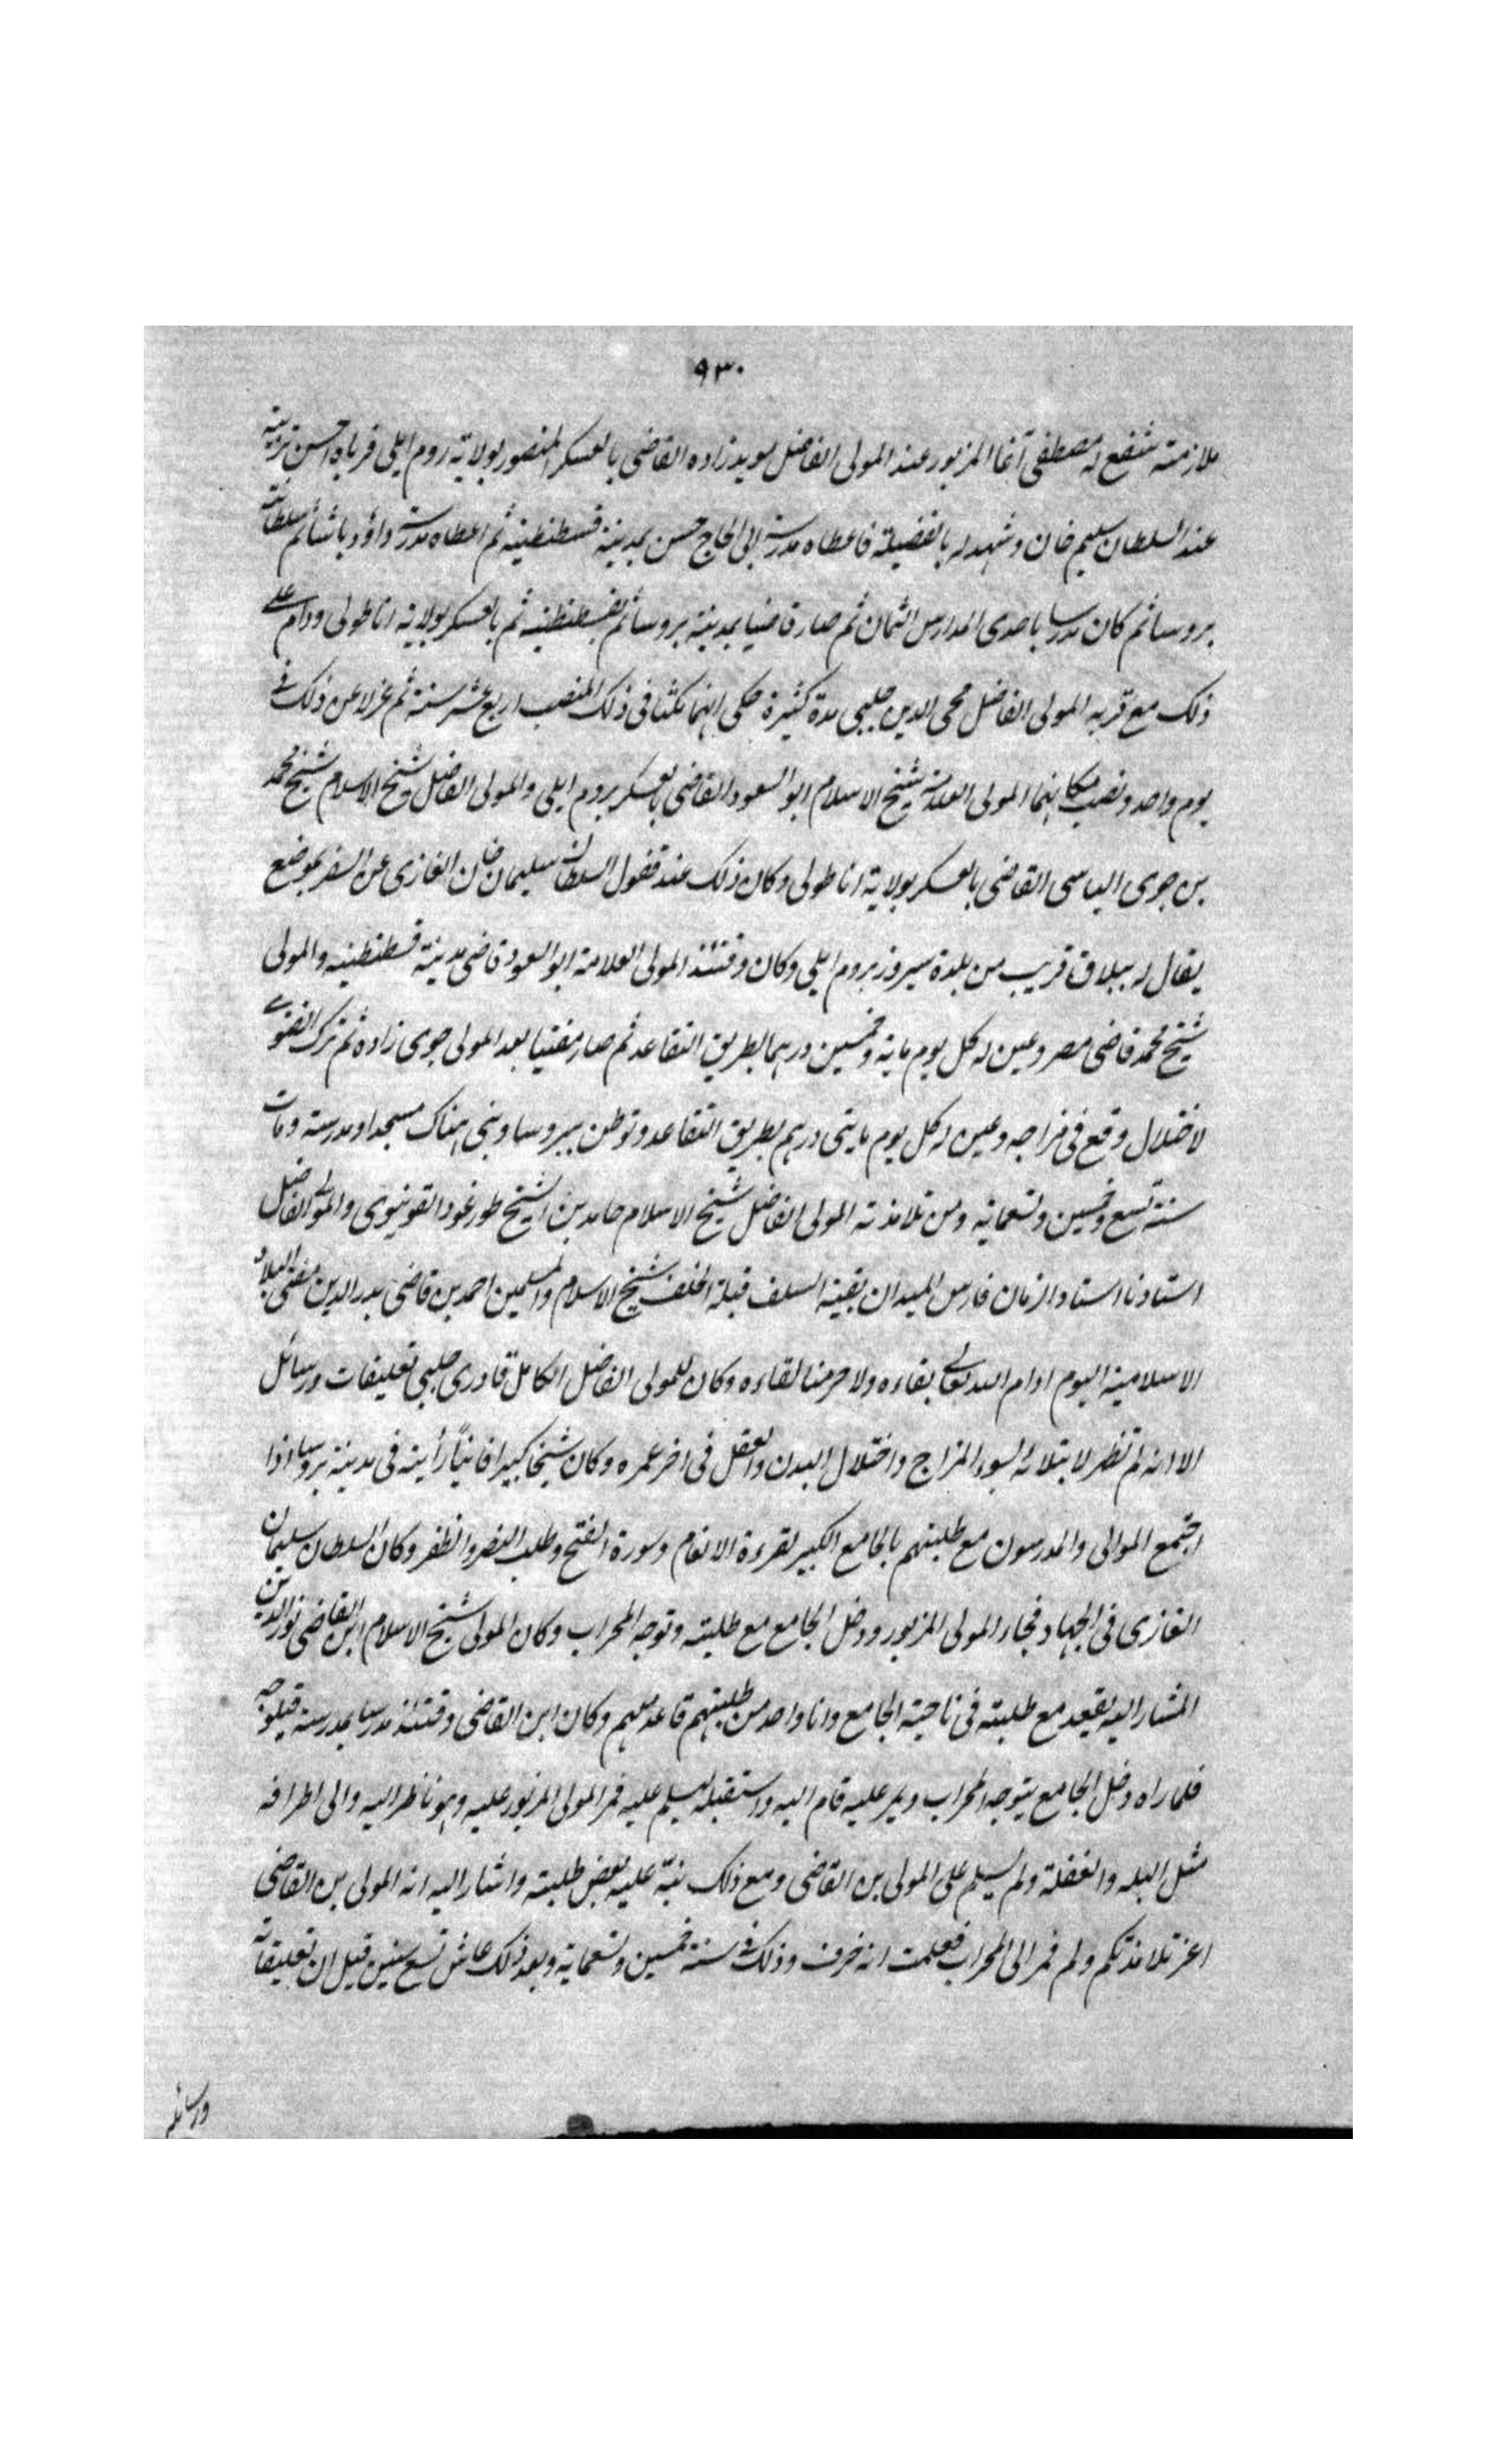 ٩٣٠
ملازمته شفع له مصطفى آغا المزبور عند المولى الفاضل مويد زاده القاضى بالعسكر المنصور بولاية روم ايلى فرباه احسن تربية
عند السلطان سليم خان وشهد له بالفضيلة فاعطاه مدرسة الحاج حسن بمدينة قسطنطينية ثم اعطاه مدرسة داؤد باشا ثم سلطانية
بروسا ثم كان مدرسا باحدى المدارس الثمان ثم صار قاضيا بمدينة بروسا ثم بقسطنطنيه ثم بالعسكر بولاية اناطولى ودام على
ذلك مع قربه المولى الفاضل محى الدين چلبى مدة كثيرة حكى انهما مكثا فى ذلك المنصب اربع عشر سنة ثم عزلا عن ذلك فى
يوم واحد ونصب مكانهما المولى العلامة شيخ الاسلام ابو السعود القاضى بالعسكر بروم ايلى والمولى الفاضل شيخ الاسلام شيخ محمد
بن جوى الياسى القاضى بالعسكر بولاية اناطولى وكان ذلك عند قفول السلطان سليمان خان الغازى عن السفر بموضع
يقال له ببلاق قريب من بلدة سيروز بروم ايلى وكان وقتئذ المولى العلامة ابو السعود قاضى مدينة قسطنطنيه والمولى
شيخ محمد قاضى مصر وعين له كل يوم ماية وخمسين درهما بطريق التقاعد ثم صار مفتيا بعد المولى جوى زاده ثم ترك الفتوى
لاختلال وقع فى مزاجه وعين له كل يوم مايتى درهم بطريق التقاعد وتوطن ببروسا وبنى هناك مسجدا ومدرسة ومات
سنة تسع وخمسين وتسعماية ومن تلامذته المولى الفاضل شيخ الاسلام حامد بن الشيخ طورغود القونيوى والمولى الفاضل
استادنا استاد الزمان فارس الميدان بقية السلف قبلة الخلف شيخ الاسلام والمسلمين احمد بن قاضى بدر الدين مفتى البلاد
الاسلامية اليوم ادام الله تعالى بقاءه ولا حرمنا لقاءه وكان للمولى الفاضل الكامل قادرى چلبى تعليقات ورسائل
الا انه لم تظهر لابتلائه بسوء المزاج واختلال البدن والعقل فى اخر عمره وكان شيخا كبيرا فانياً رأيته فى مدينة بروسا اذا
اجتمع الموالى والمدرسون مع طلبتهم بالجامع الكبير لقرءة الانعام وسورة الفتح وطلب النصر والظفر وكان السلطان سليمان
الغازى فى الجهاد فجاء المولى المزبور ودخل الجامع مع طلبته وتوجه المحراب وكان المولى شيخ الاسلام ابن القاضى نور الدين
المشار اليه يقعد مع طلبته فى ناحية الجامع وانا واحد من طلبتهم قاعد معهم وكان ابن القاضى وقتئذ مدرسا بمدرسة قپلوجه
فلما راه دخل الجامع يتوجه المحراب ويمر عليه قام اليه واستقبله ليسلم عليه فمر المولى المزبور عليه وهو ناظر اليه والى اطرافه
مثل البله والغفلة ولم يسلم على المولى بن القاضى ومع ذلك نبّه عليه بعض طلبته واشار اليه انه المولى بن القاضى
اعز تلامذتكم ولم فمر الى المحراب فعلمت انه خرف وذلك فى سنة خمسين وتسعماية وبعد ذلك عاش تسع سنين قيل ان تعليقاته
ورسائله